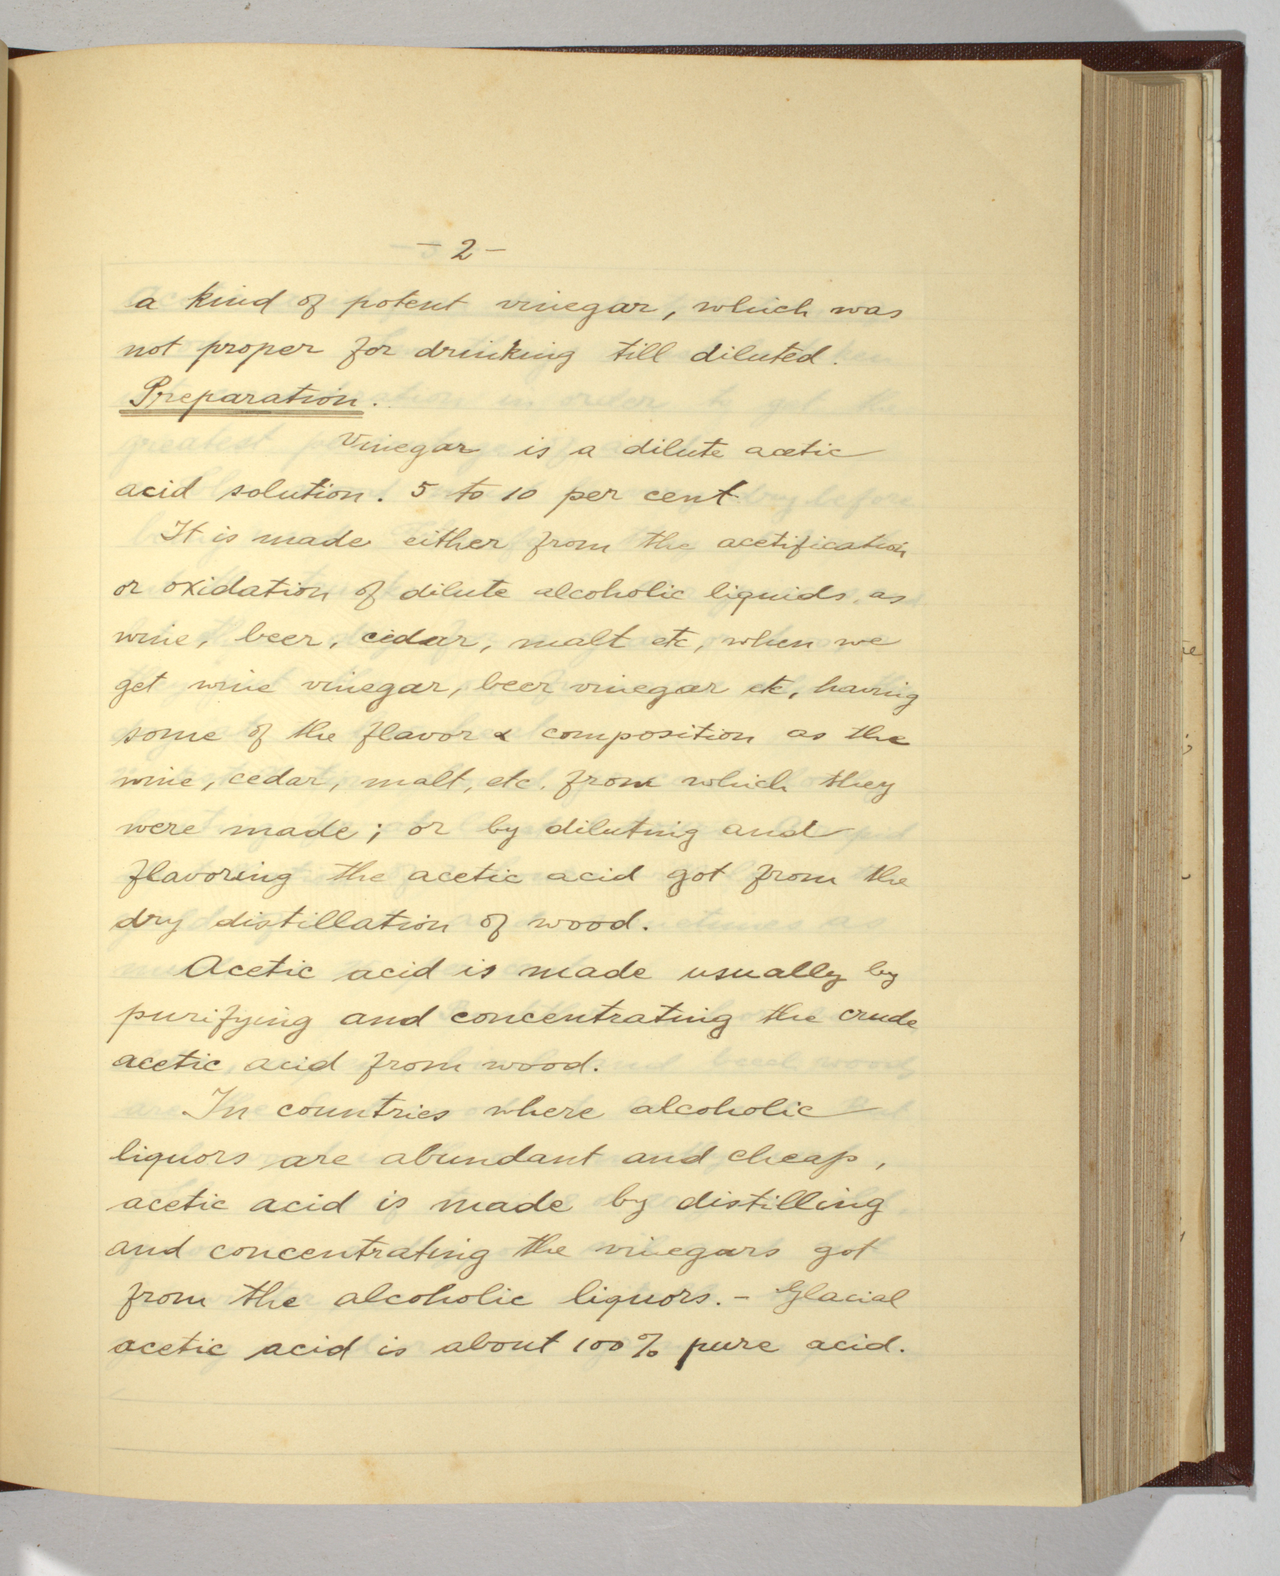 - 2 -
a kind of potent vinegar, which was
not proper for drinking till diluted.
Preparation.
Vinegar is a dilute acetic
acid solution. 5 to 10 per cent
It is made either from the acetification
or oxidation of dilute alcoholic liquids, as
wine, beer, cidar, malt etc, when we
get wine vinegar, beer vinegar etc, having
some of the flavor & composition as the
wine, cedar, malt, etc. from which they
were made; or by diluting and
flavoring the acetic acid got from the
dry distillation of wood.
Acetic acid is made usually by
purifying and concentrating the crude
acetic acid from wood.
In countries where alcoholic
liquors are abundant and cheap,
acetic acid is made by distilling
and concentrating the vinegars got
from the alcoholic liquors. - Glacial
acetic acid is about 100% pure acid.